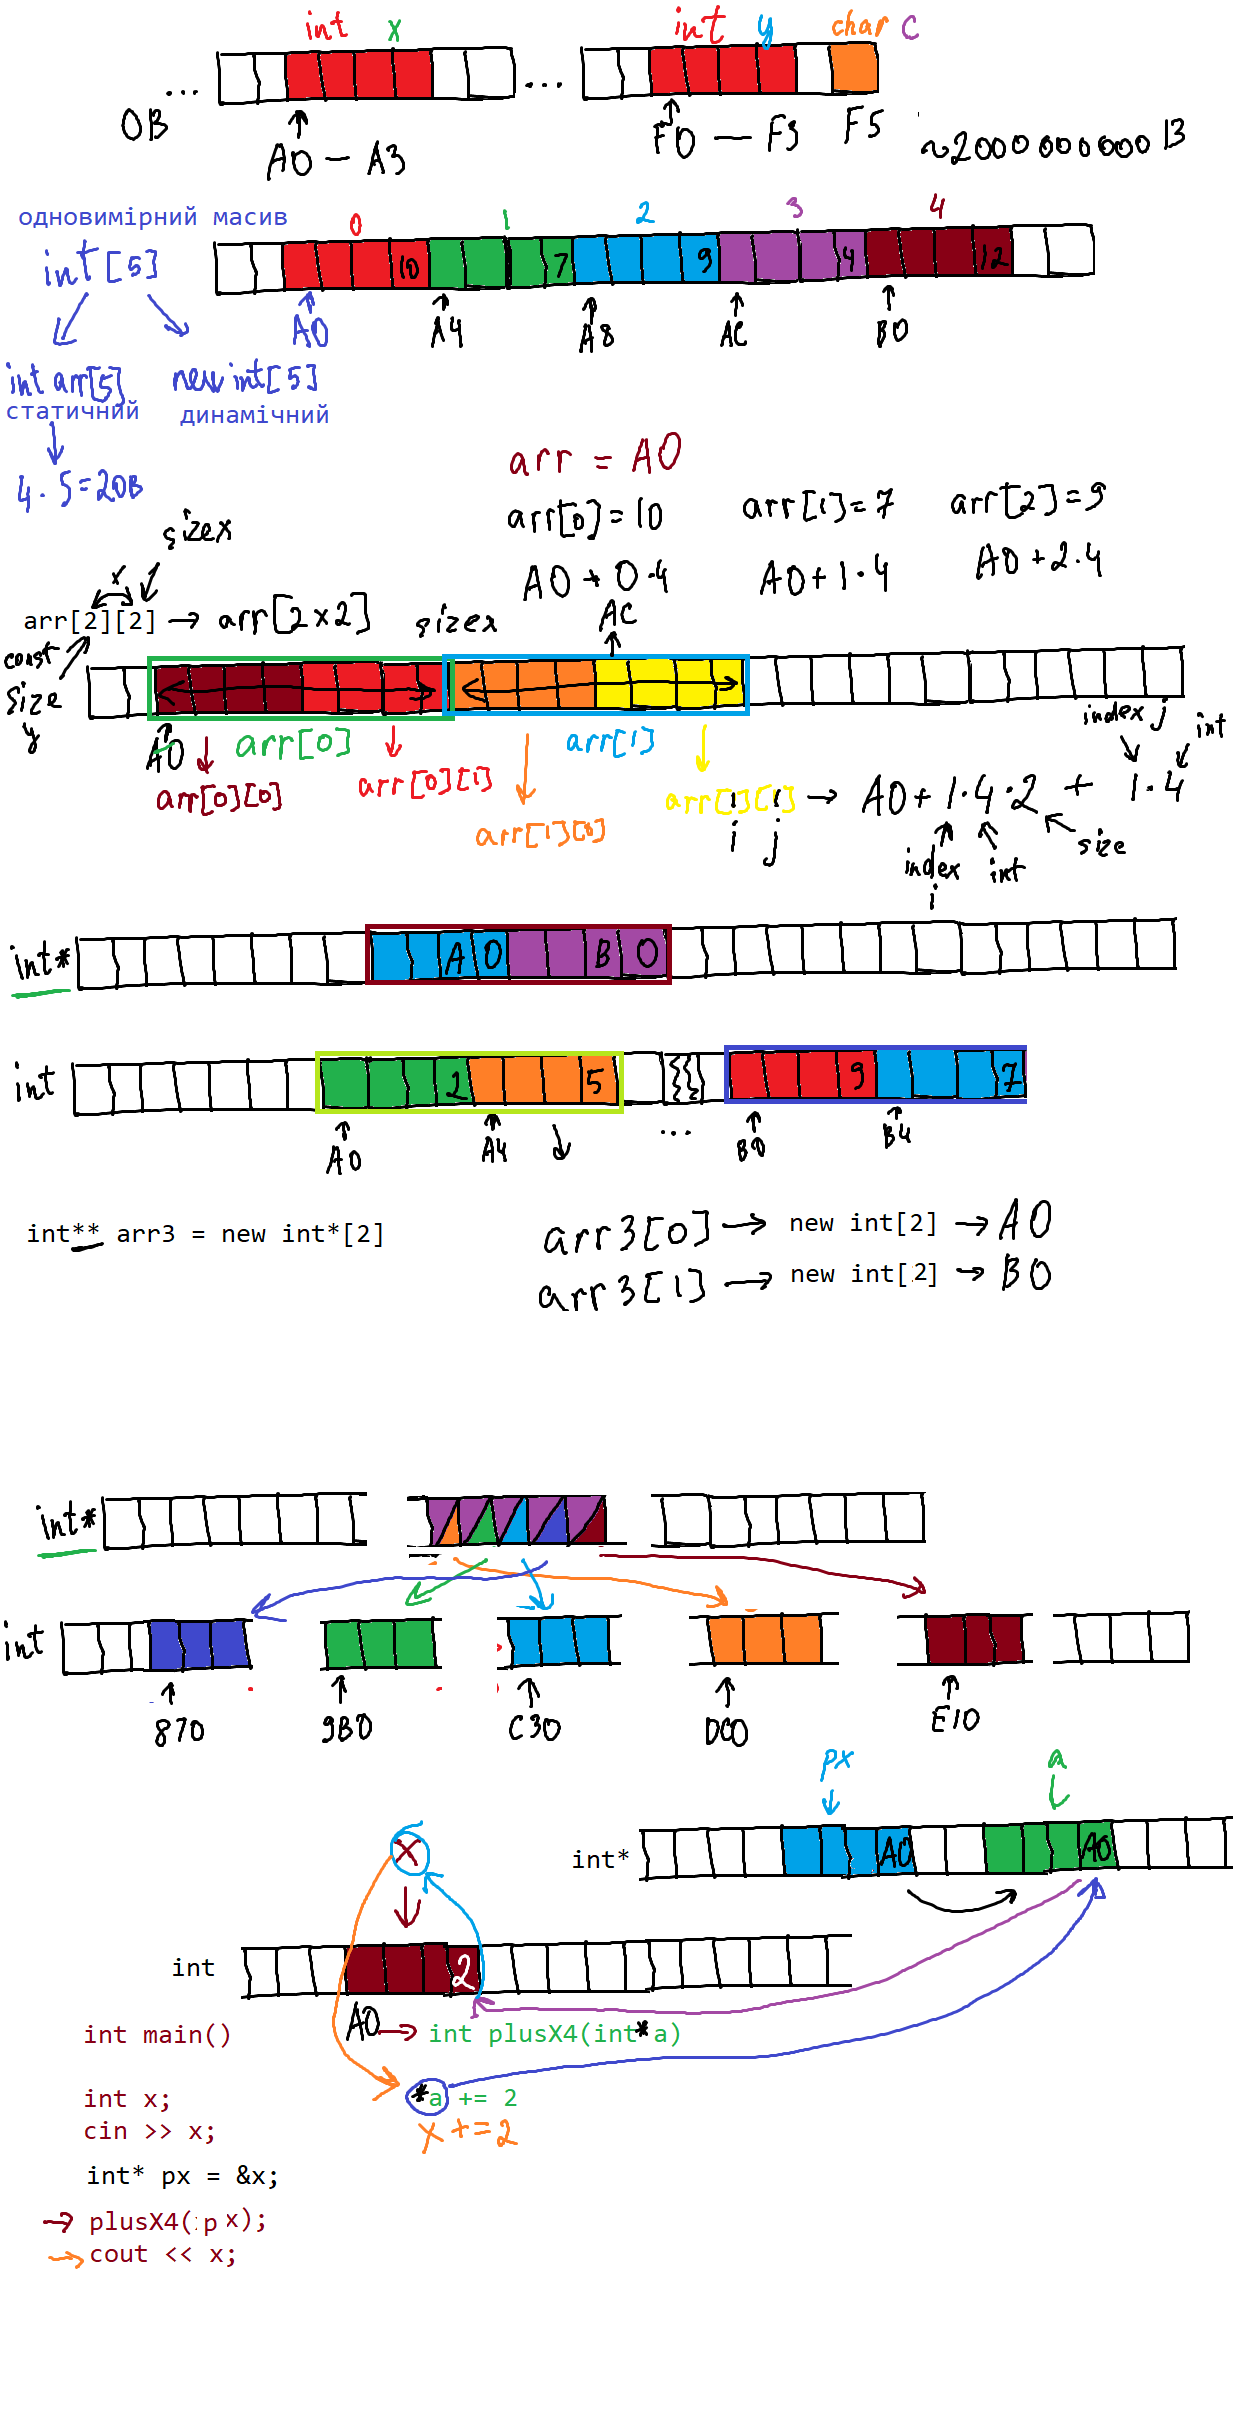 int x
int y char c
...
...
0B
A0 — A3
F0 — F3
F5
~2000000000 B
одновимірний масив
int[5]
0 1 2 3 4
10 7 9 4 12
A0 A4 A8 AC B0
int arr[5] new int[5]
статичний динамічний
4·5=20B
arr = A0
arr[0]=10 arr[1]=7 arr[2]=9
A0+0·4 A0+1·4 A0+2·4
sizex
x
arr[2][2] → arr[2x2]
sizex
AC
const
size
y
A0
arr[0] arr[1]
arr[0][0] arr[0][1] arr[1][0] arr[1][1] → A0+1·4·2 + 1·4
i j
index j
int
index
i
int
size
int*
A0 B0
int
2 5 9 7
A0 A4 ... B0 B4
int** arr3 = new int*[2]
arr3[0] → new int[2] → A0
arr3[1] → new int[2] → B0
int*
int
870 9B0 C30 DC0 E10
px a
x
int*
A0 A0
int
2
A0 → int plusX4(int*a)
int main()
*a += 2
x+=2
int x;
cin >> x;
int* px = &x;
→ plusX4(px);
→ cout << x;